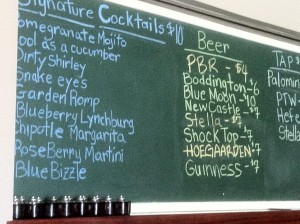 Signature Cocktails $10
omegranate Mojito
ool as a cucumber
Dirty Shirley
Snake eyes
Garden Romp
Blueberry Lynchburg
Chipotle Margarita
RoseBerry Martini
Blue Bizzle
Beer
PBR - $4
Boddington - 6
Blue Moon - 10
NewCastle - 7
Stella - 
Shock Top - 7
HOEGAARDEN - 7
Guinness - 7
TAP $
Palomin
PTW
Hefe
Stella